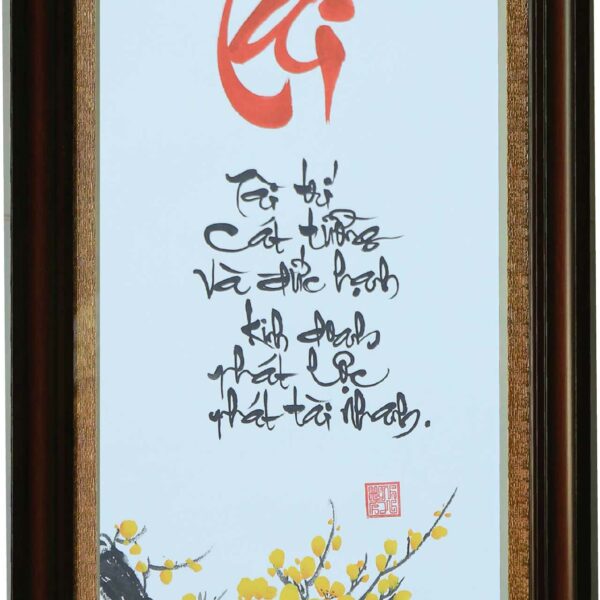 Tài
Tài trí
Cát tường
và đức hạnh
kinh doanh
phát lộc
phát tài nhanh.